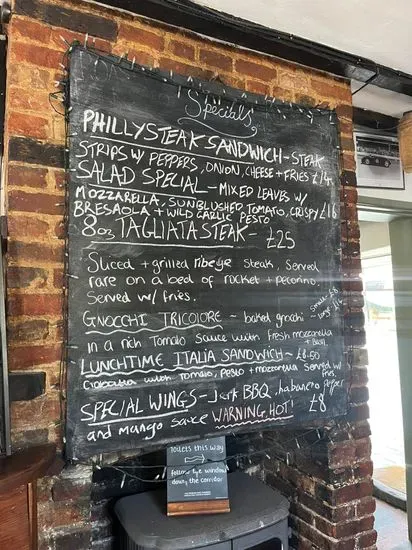 Specials
PHILLYSTEAK SANDWICH - STEAK
STRIPS W/ PEPPERS, ONION, CHEESE + FRIES £14
SALAD SPECIAL - MIXED LEAVES W/
MOZZARELLA, SUNBLUSHED TOMATO, CRISPY £16
BRESAOLA + WILD GARLIC PESTO
8oz TAGLIATA STEAK - £25
Sliced + grilled ribeye steak, served
rare on a bed of rocket + pecorino.
Served w/ fries.
GNOCCHI TRICOLORE - baked gnocchi - small £8
in a rich Tomato Sauce with fresh mozzarella
+ basil
LUNCHTIME ITALIA SANDWICH - £8.50
Ciabatta with tomato, pesto + mozzarella served w/
fries,
SPECIAL WINGS - Jerk BBQ, habanero pepper
and mango sauce WARNING, HOT! £8
Toilets this way
follow the window
down the corridor